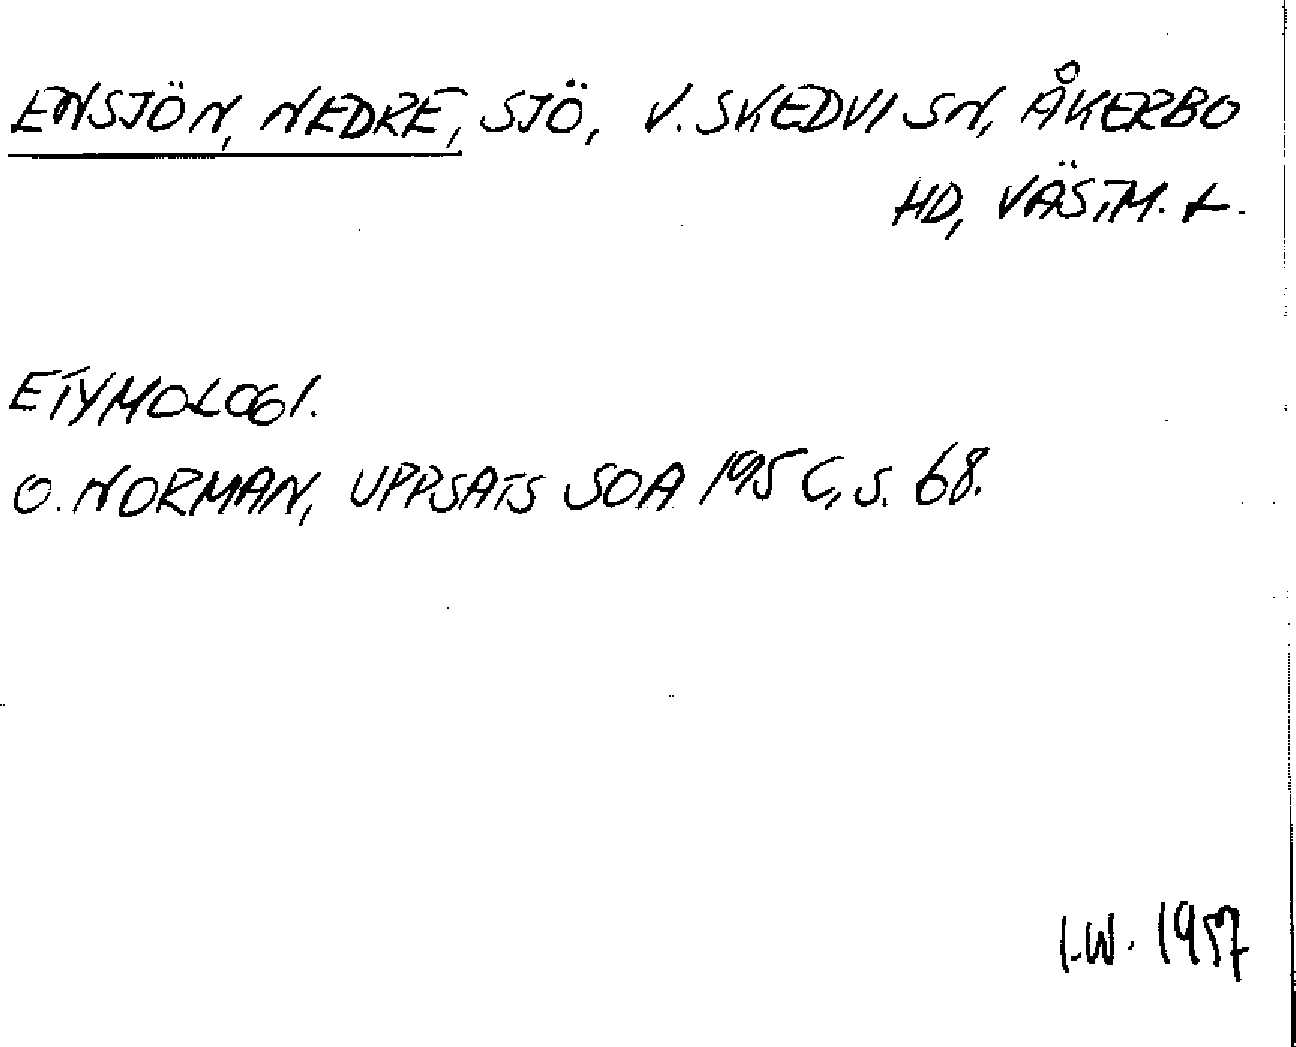 ENSJÖN, NEDRE, SJÖ, V. SKEDVI SN, ÅKERBO
HD, VÄSTM. L.
ETYMOLOGI.
O. NORMAN, UPPSATS SOA 1956, S. 68.
I.W. 1957